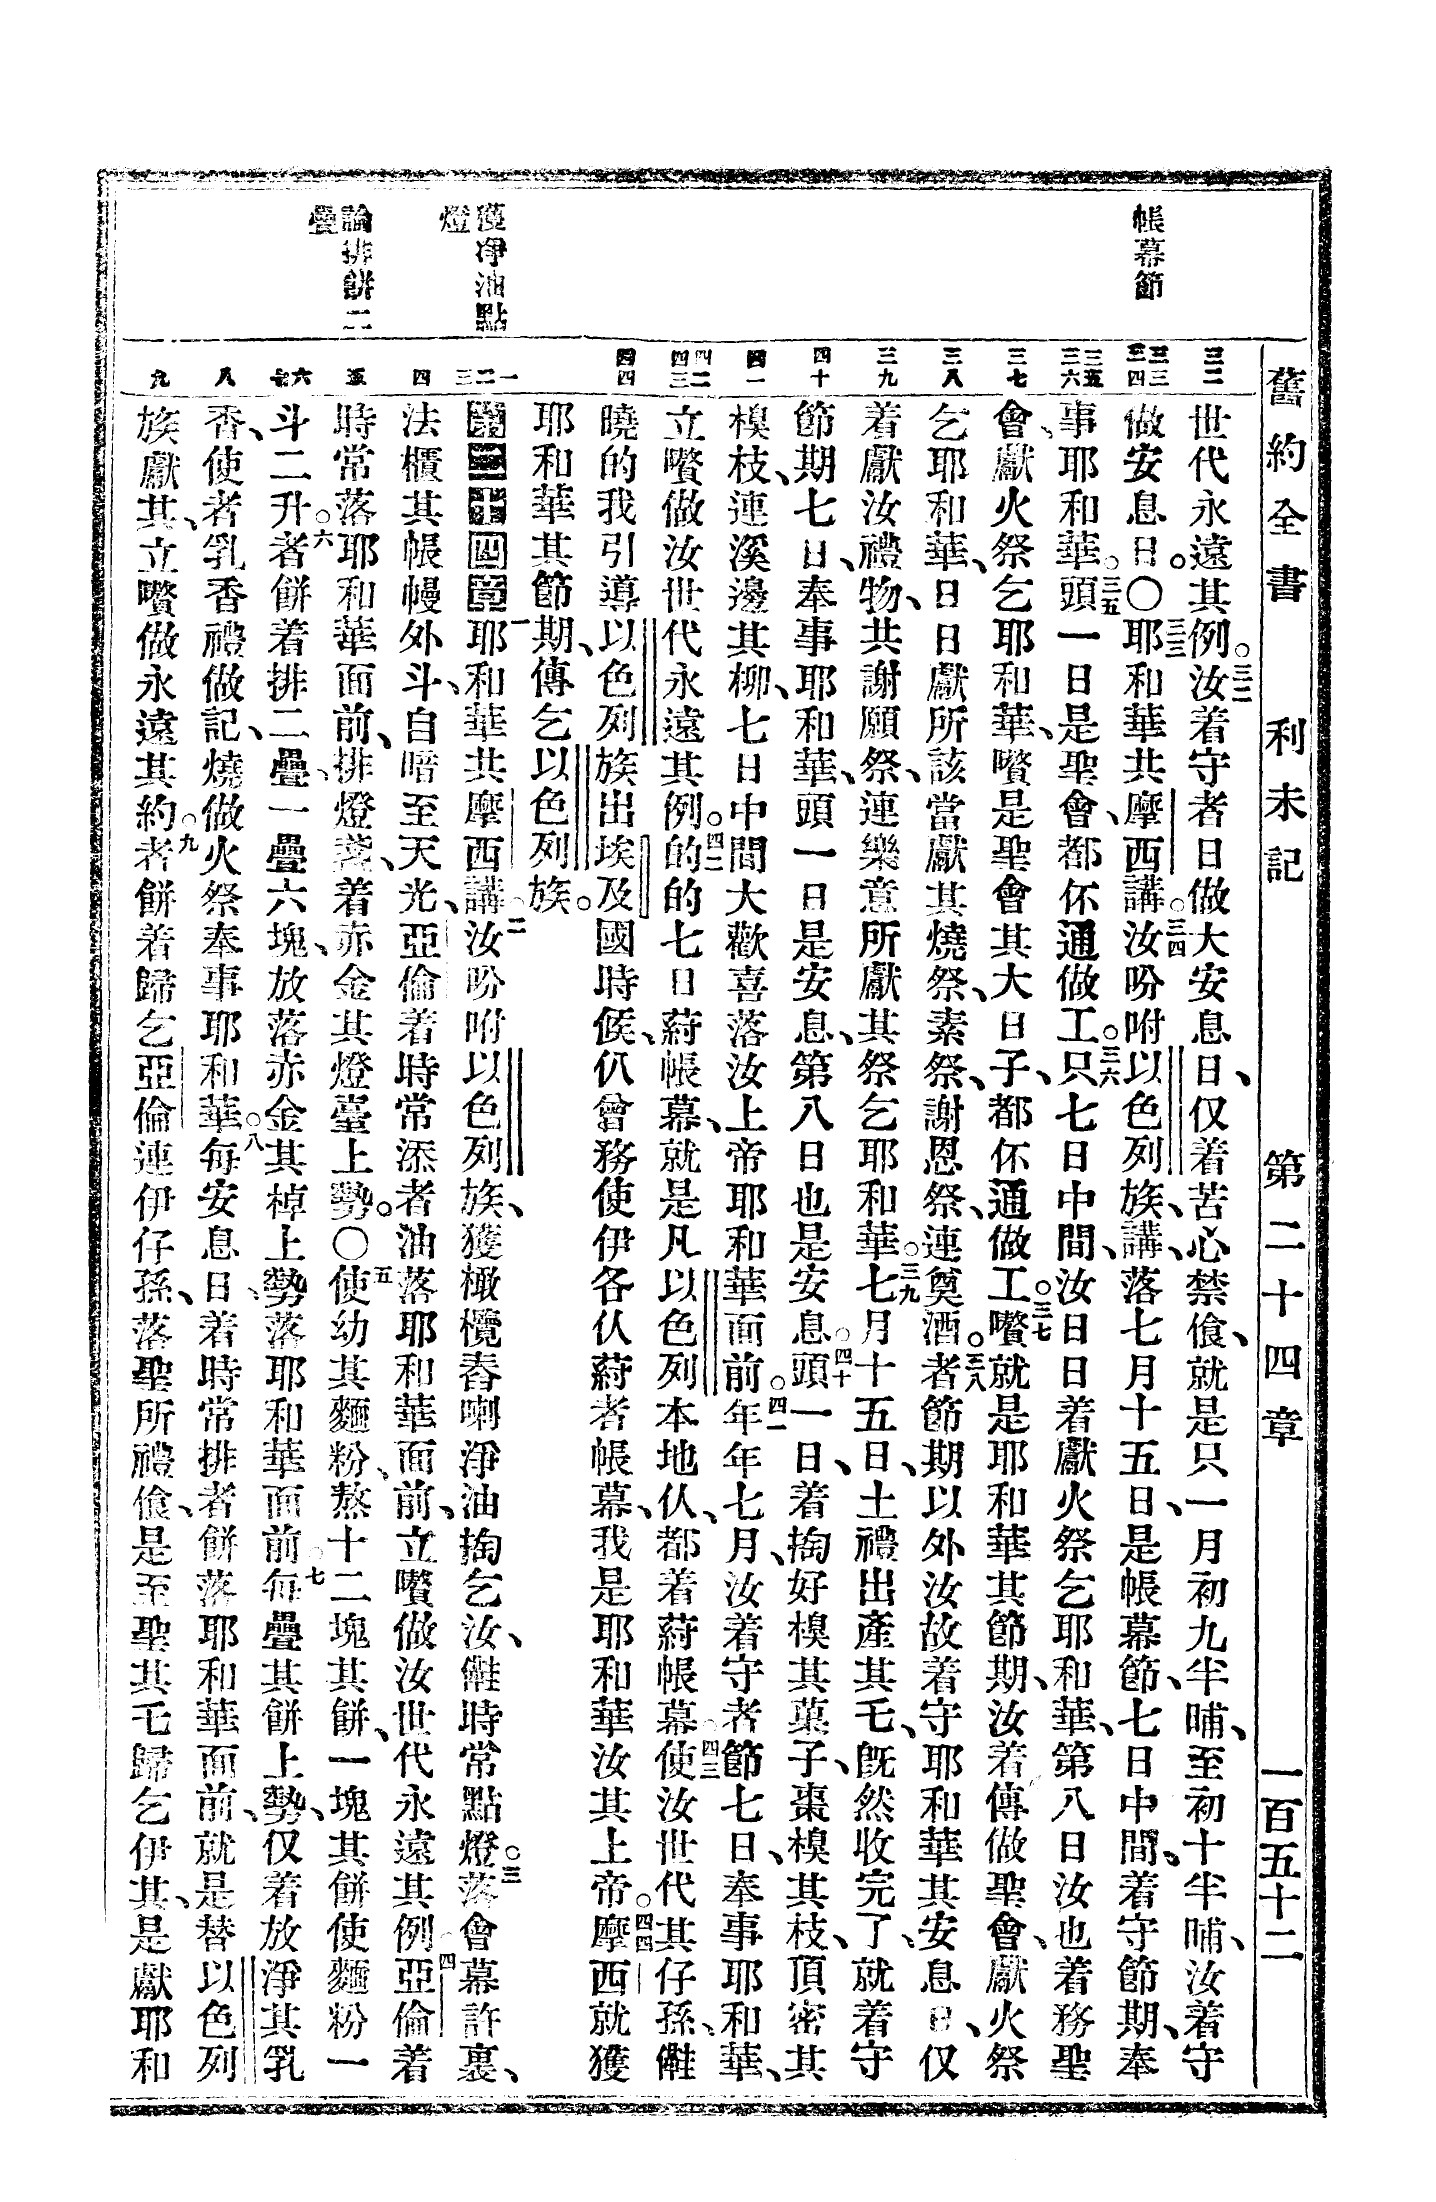 舊約全書　利未記　第二十四章　一百五十二
帳幕節
獲淨油點
燈
論排餅二
疊
三二
三三
三四
三五
三六
三七
三八
三九
四十
四一
四二
四三
四四
一
二
三
四
五
六
七
八
九
世代永遠其例。三二汝着守者日做大安息日、仅着苦心禁飡、就是只一月初九半晡、至初十半晡、汝着守
做安息日。〇三三耶和華共摩西講。三四汝吩咐以色列族、講、落七月十五日、是帳幕節、七日中間、着守節期、奉
事耶和華。三五頭一日是聖會、都伓通做工。三六只七日中間、汝日日着獻火祭乞耶和華、第八日汝也着務聖
會、獻火祭乞耶和華、嚽是聖會其大日子、都伓通做工。三七嚽就是耶和華其節期、汝着傳做聖會、獻火祭
乞耶和華、日日獻所該當獻其燒祭、素祭、謝恩祭、連奠酒。三八者節期以外汝故着守耶和華其安息日、仅
着獻汝禮物、共謝願祭、連樂意所獻其祭乞耶和華。三九七月十五日、土禮出產其乇、旣然收完了、就着守
節期七日、奉事耶和華、頭一日是安息、第八日也是安息。四十頭一日、着掏好樣其菓子、棗樣其枝、頂密其
樣枝、連溪邊其柳、七日中間大歡喜落汝上帝耶和華面前。四一年年七月、汝着守者節七日、奉事耶和華、
立嚽做汝世代永遠其例。四二的的七日葤帳幕、就是凡以色列本地仈、都着葤帳幕。四三使汝世代其仔孫、𠆧
曉的我引導以色列族出埃及國時候、仈曾務使伊各仈葤者帳幕、我是耶和華汝其上帝。四四摩西就獲
耶和華其節期、傳乞以色列族。
第二十四章一耶和華共摩西講。二汝吩咐以色列族、獲橄欖舂喇淨油掏乞汝、𠆧時常點燈。三落會幕許裏、
法櫃其帳幔外斗、自暗至天光、亞倫着時常添者油落耶和華面前、立嚽做汝世代永遠其例。四亞倫着
時常落耶和華面前、排燈盞、着赤金其燈臺上勢。〇五使幼其麵粉、熬十二塊其餅、一塊其餅使麵粉一
斗二升。六者餅着排二疊、一疊六塊、放落赤金其棹上勢、落耶和華面前。七每疊其餅上勢、仅着放淨其乳
香、使者乳香禮做記、燒做火祭奉事耶和華。八每安息日着時常排者餅落耶和華面前、就是替以色列
族獻其、立嚽做永遠其約。九者餅着歸乞亞倫連伊仔孫、落聖所禮飡、是至聖其乇歸乞伊其、是獻耶和